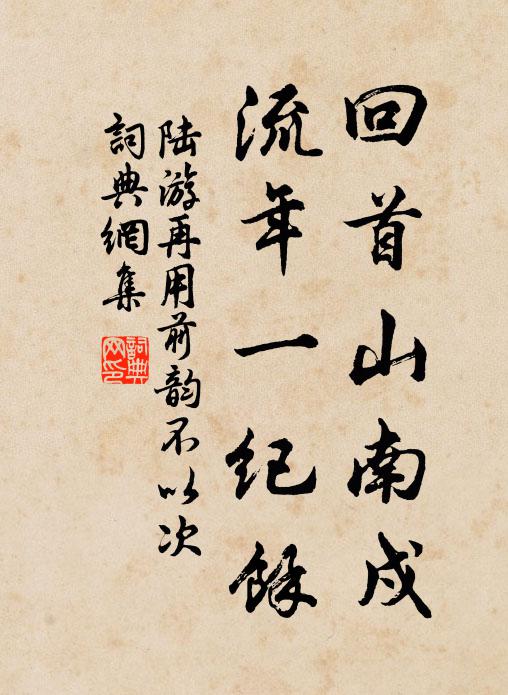 回首山南戍
流年一紀餘
陆游再用前韵不以次
詞典網集
詞典網印